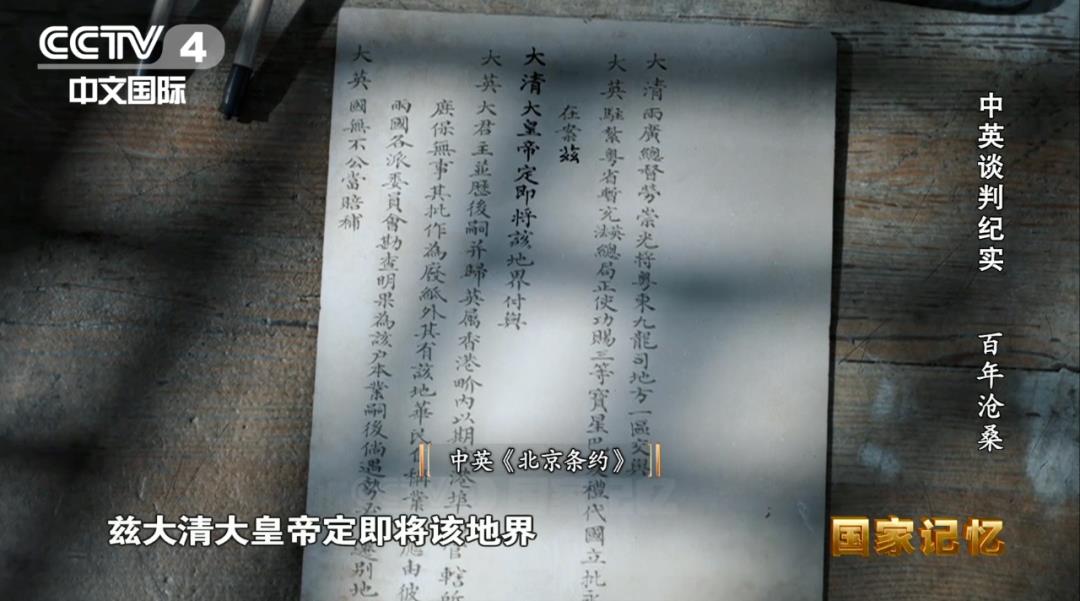 CCTV 4
中文国际
中英谈判纪实 百年沧桑
大清兩廣總督勞崇光将粤東九龍司地方一區交與
大英駐紮粤省暫充英法總局正使功賜三等寶星巴
禮代國立批永
在案茲
大清大皇帝定即将該地界付與
大英大君主並歷後嗣并歸英属香港界内以期
港埠
管轄所
庶保無事其批作為廢紙外其有該地華民
稱業
應由彼
兩國各派委員會勘查明果為該户本業嗣後倘遇勢
別地
大英國無不公當賠補
中英《北京条约》
兹大清大皇帝定即将该地界
国家记忆